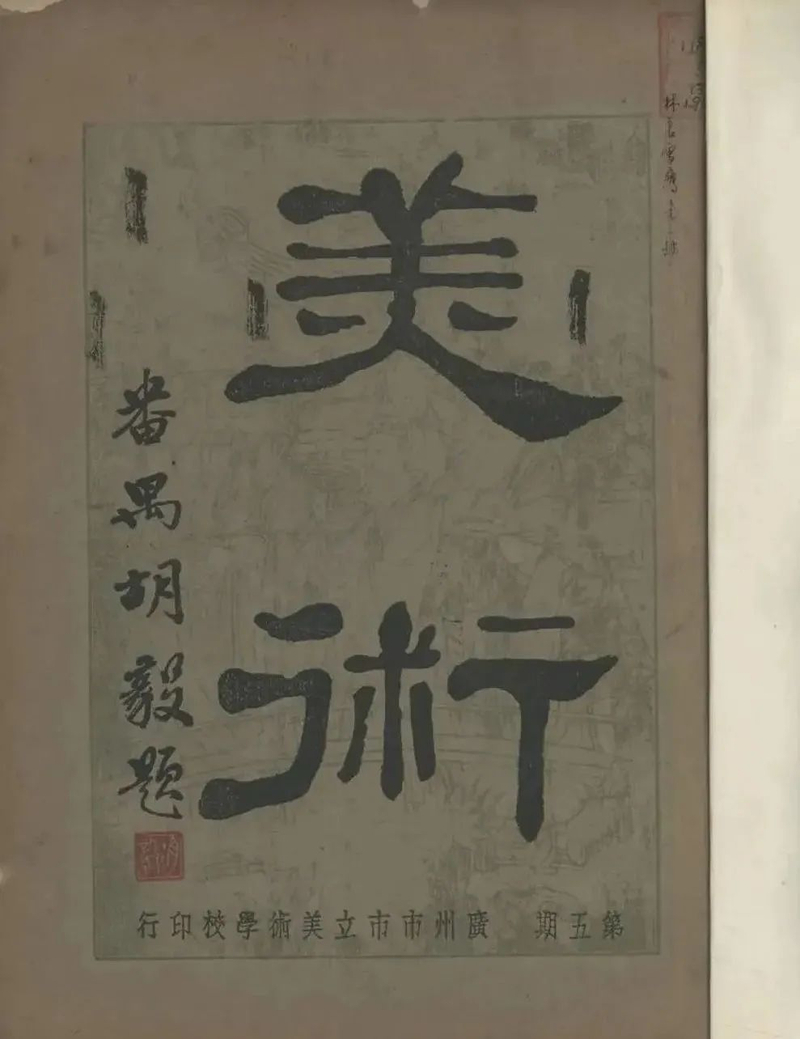 美術
番禺胡毅題
第五期 廣州市市立美術學校印行